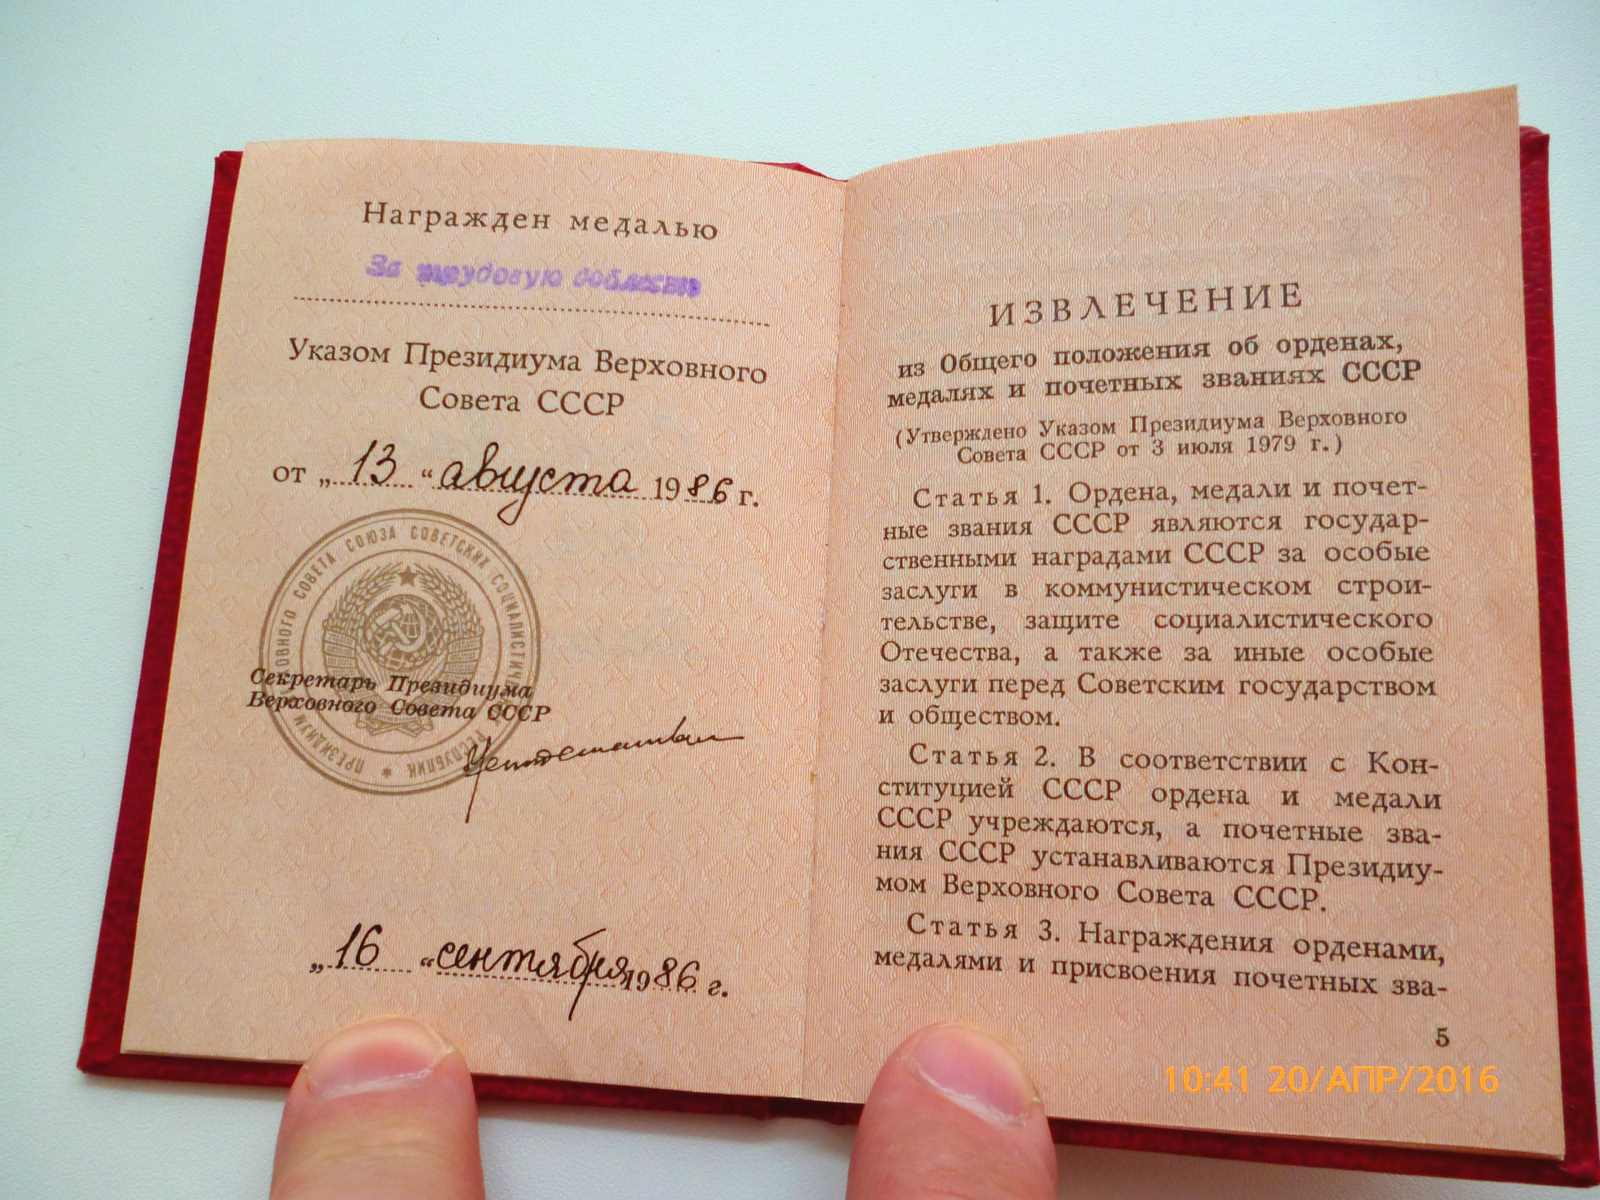 Награжден медалью
За трудовую доблесть
Указом Президиума Верховного
Совета СССР
от „ 13 “ августа 1986 г.
ПРЕЗИДИУМ ВЕРХОВНОГО СОВЕТА СОЮЗА СОВЕТСКИХ СОЦИАЛИСТИЧЕСКИХ РЕСПУБЛИК
Секретарь Президиума
Верховного Совета СССР
„ 16 “ сентября 1986 г.
ИЗВЛЕЧЕНИЕ
из Общего положения об орденах,
медалях и почетных званиях СССР
(Утверждено Указом Президиума Верховного
Совета СССР от 3 июля 1979 г.)
Статья 1. Ордена, медали и почет-
ные звания СССР являются государ-
ственными наградами СССР за особые
заслуги в коммунистическом строи-
тельстве, защите социалистического
Отечества, а также за иные особые
заслуги перед Советским государством
и обществом.
Статья 2. В соответствии с Кон-
ституцией СССР ордена и медали
СССР учреждаются, а почетные зва-
ния СССР устанавливаются Президиу-
мом Верховного Совета СССР.
Статья 3. Награждения орденами,
медалями и присвоения почетных зва-
5
10:41 20/АПР/2016